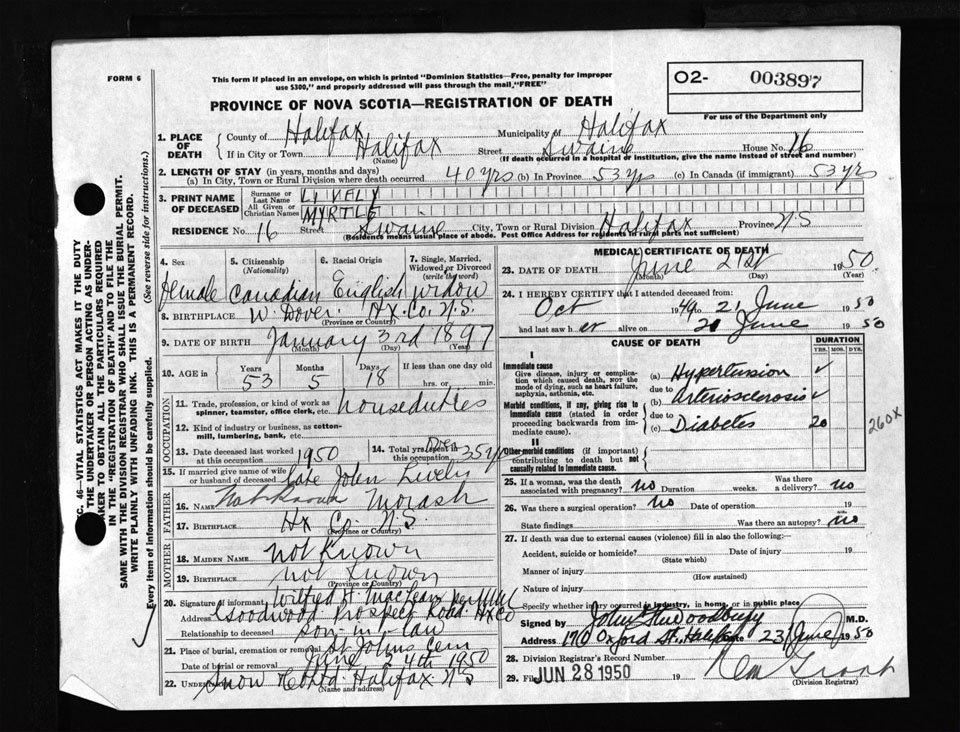 FORM 6
This form if placed in an envelope, on which is printed "Dominion Statistics—Free, penalty for improper
use $300," and properly addressed will pass through the mail, "FREE"
O2- 003897
For use of the Department only
PROVINCE OF NOVA SCOTIA—REGISTRATION OF DEATH
SEC. 46—VITAL STATISTICS ACT MAKES IT THE DUTY
OF THE UNDERTAKER OR PERSON ACTING AS UNDER-
TAKER TO OBTAIN ALL THE PARTICULARS REQUIRED
IN THE "REGISTRATION OF DEATH" AND TO FILE THE
SAME WITH THE DIVISION REGISTRAR WHO SHALL ISSUE THE BURIAL PERMIT.
WRITE PLAINLY WITH UNFADING INK. THIS IS A PERMANENT RECORD.
Every item of information should be carefully supplied. (See reverse side for instructions.)
1. PLACE OF DEATH
County of Halifax Municipality of Halifax
If in City or Town Halifax Street Swaine House No. 16
(Name) (If death occurred in a hospital or institution, give the name instead of street and number)
2. LENGTH OF STAY (in years, months and days)
(a) In City, Town or Rural Division where death occurred 40 yrs (b) In Province 53 yrs (c) In Canada (if immigrant) 53 yrs
3. PRINT NAME OF DECEASED
Surname or Last Name LIVELY
All Given or Christian Names MYRTLE
RESIDENCE No. 16 Street Swaine City, Town or Rural Division Halifax Province N.S
(Residence means usual place of abode. Post Office Address for residents in rural parts not sufficient)
4. Sex 5. Citizenship (Nationality) 6. Racial Origin 7. Single, Married, Widowed or Divorced (write the word)
female Canadian English widow
8. BIRTHPLACE W. Dover. Hx. Co. N.S.
(Province or Country)
9. DATE OF BIRTH January 3rd 1897
(Month) (Day) (Year)
10. AGE Years Months Days If less than one day old
53 5 18 hrs. or min.
OCCUPATION
11. Trade, profession, or kind of work as
spinner, teamster, office clerk, etc. houseduties
12. Kind of industry or business, as cotton-
mill, lumbering, bank, etc.
13. Date deceased last worked at this occupation 1950 14. Total yrs. spent in this occupation Over 35 yrs
15. If married give name of wife
or husband of deceased Late John Lively
FATHER
16. NAME Not Known Morash
17. BIRTHPLACE Hx Co. N.S.
(Province or Country)
MOTHER
18. MAIDEN NAME Not Known
19. BIRTHPLACE Not Known
(Province or Country)
20. Signature of informant Wilfred H. MacLean per
Address Goodwood Prospect Road Hx Co
Relationship to deceased son in law
21. Place of burial, cremation or removal St Johns cem
Date of burial or removal June 24th 1950
22. UNDERTAKER Snow Halifax N.S
(Name and address)
MEDICAL CERTIFICATE OF DEATH
23. DATE OF DEATH June 21st 1950
(Month) (Day) (Year)
24. I HEREBY CERTIFY that I attended deceased from
Oct 1949 to 21 June 1950
and last saw her alive on 21 June 1950
CAUSE OF DEATH DURATION
YRS. MOS. DYS.
I
Immediate cause
Give disease, injury or complica-
tion which caused death, NOT the
mode of dying, such as heart failure,
asphyxia, asthenia, etc.
(a) Hypertension ✓
due to
Morbid conditions, if any, giving rise to
immediate cause (stated in order
proceeding backwards from im-
mediate cause).
(b) Arteriosclerosis ✓
due to
(c) Diabetes 20
260X
II
Other morbid conditions (if important)
contributing to death but not
causally related to immediate cause.
25. If a woman, was the death
associated with pregnancy? no Duration weeks. Was there a delivery? no
26. Was there a surgical operation? no Date of operation 19
State findings Was there an autopsy? no
27. If death was due to external causes (violence) fill in also the following:—
Accident, suicide or homicide? Date of injury 19
(State which)
Manner of injury
(How sustained)
Nature of injury
Specify whether injury occurred in industry, in home, or in public place
Signed by John Woodbury M.D.
Address 170 Oxford St. Halifax Date 23 June 1950
28. Division Registrar's Record Number
29. Filed JUN 28 1950 19
(Division Registrar)